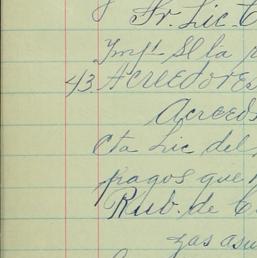 Sr. Lic. C
Impt. Sl la r
43 Acreedores
Acreed
Cta Lic del
pagos que h
Rub. de C
zas asu